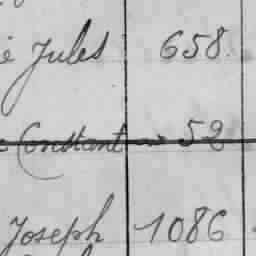 é Jules 658
Constant 52
Joseph 1086